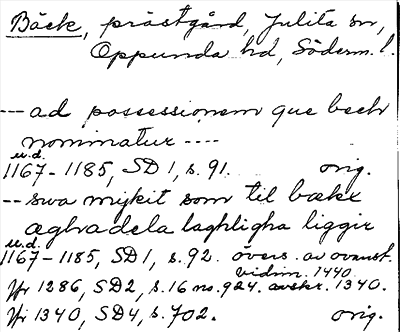 Bäck, prästgård, Julita sn,
Oppunda hd, Söderm. l.
--- ad possessionem que bech
nominatur ----
u.d.
1167-1185, SD 1, s. 91. orig.
-- swa mykit som til bækx
æghradela laghligha liggir
u.d.
1167-1185, SD 1, s. 92. övers. av ovanst.
vidim. 1440.
Jfr 1286, SD2, s. 16 no. 924. avskr. 1340.
Jfr 1340, SD4, s. 702. orig.